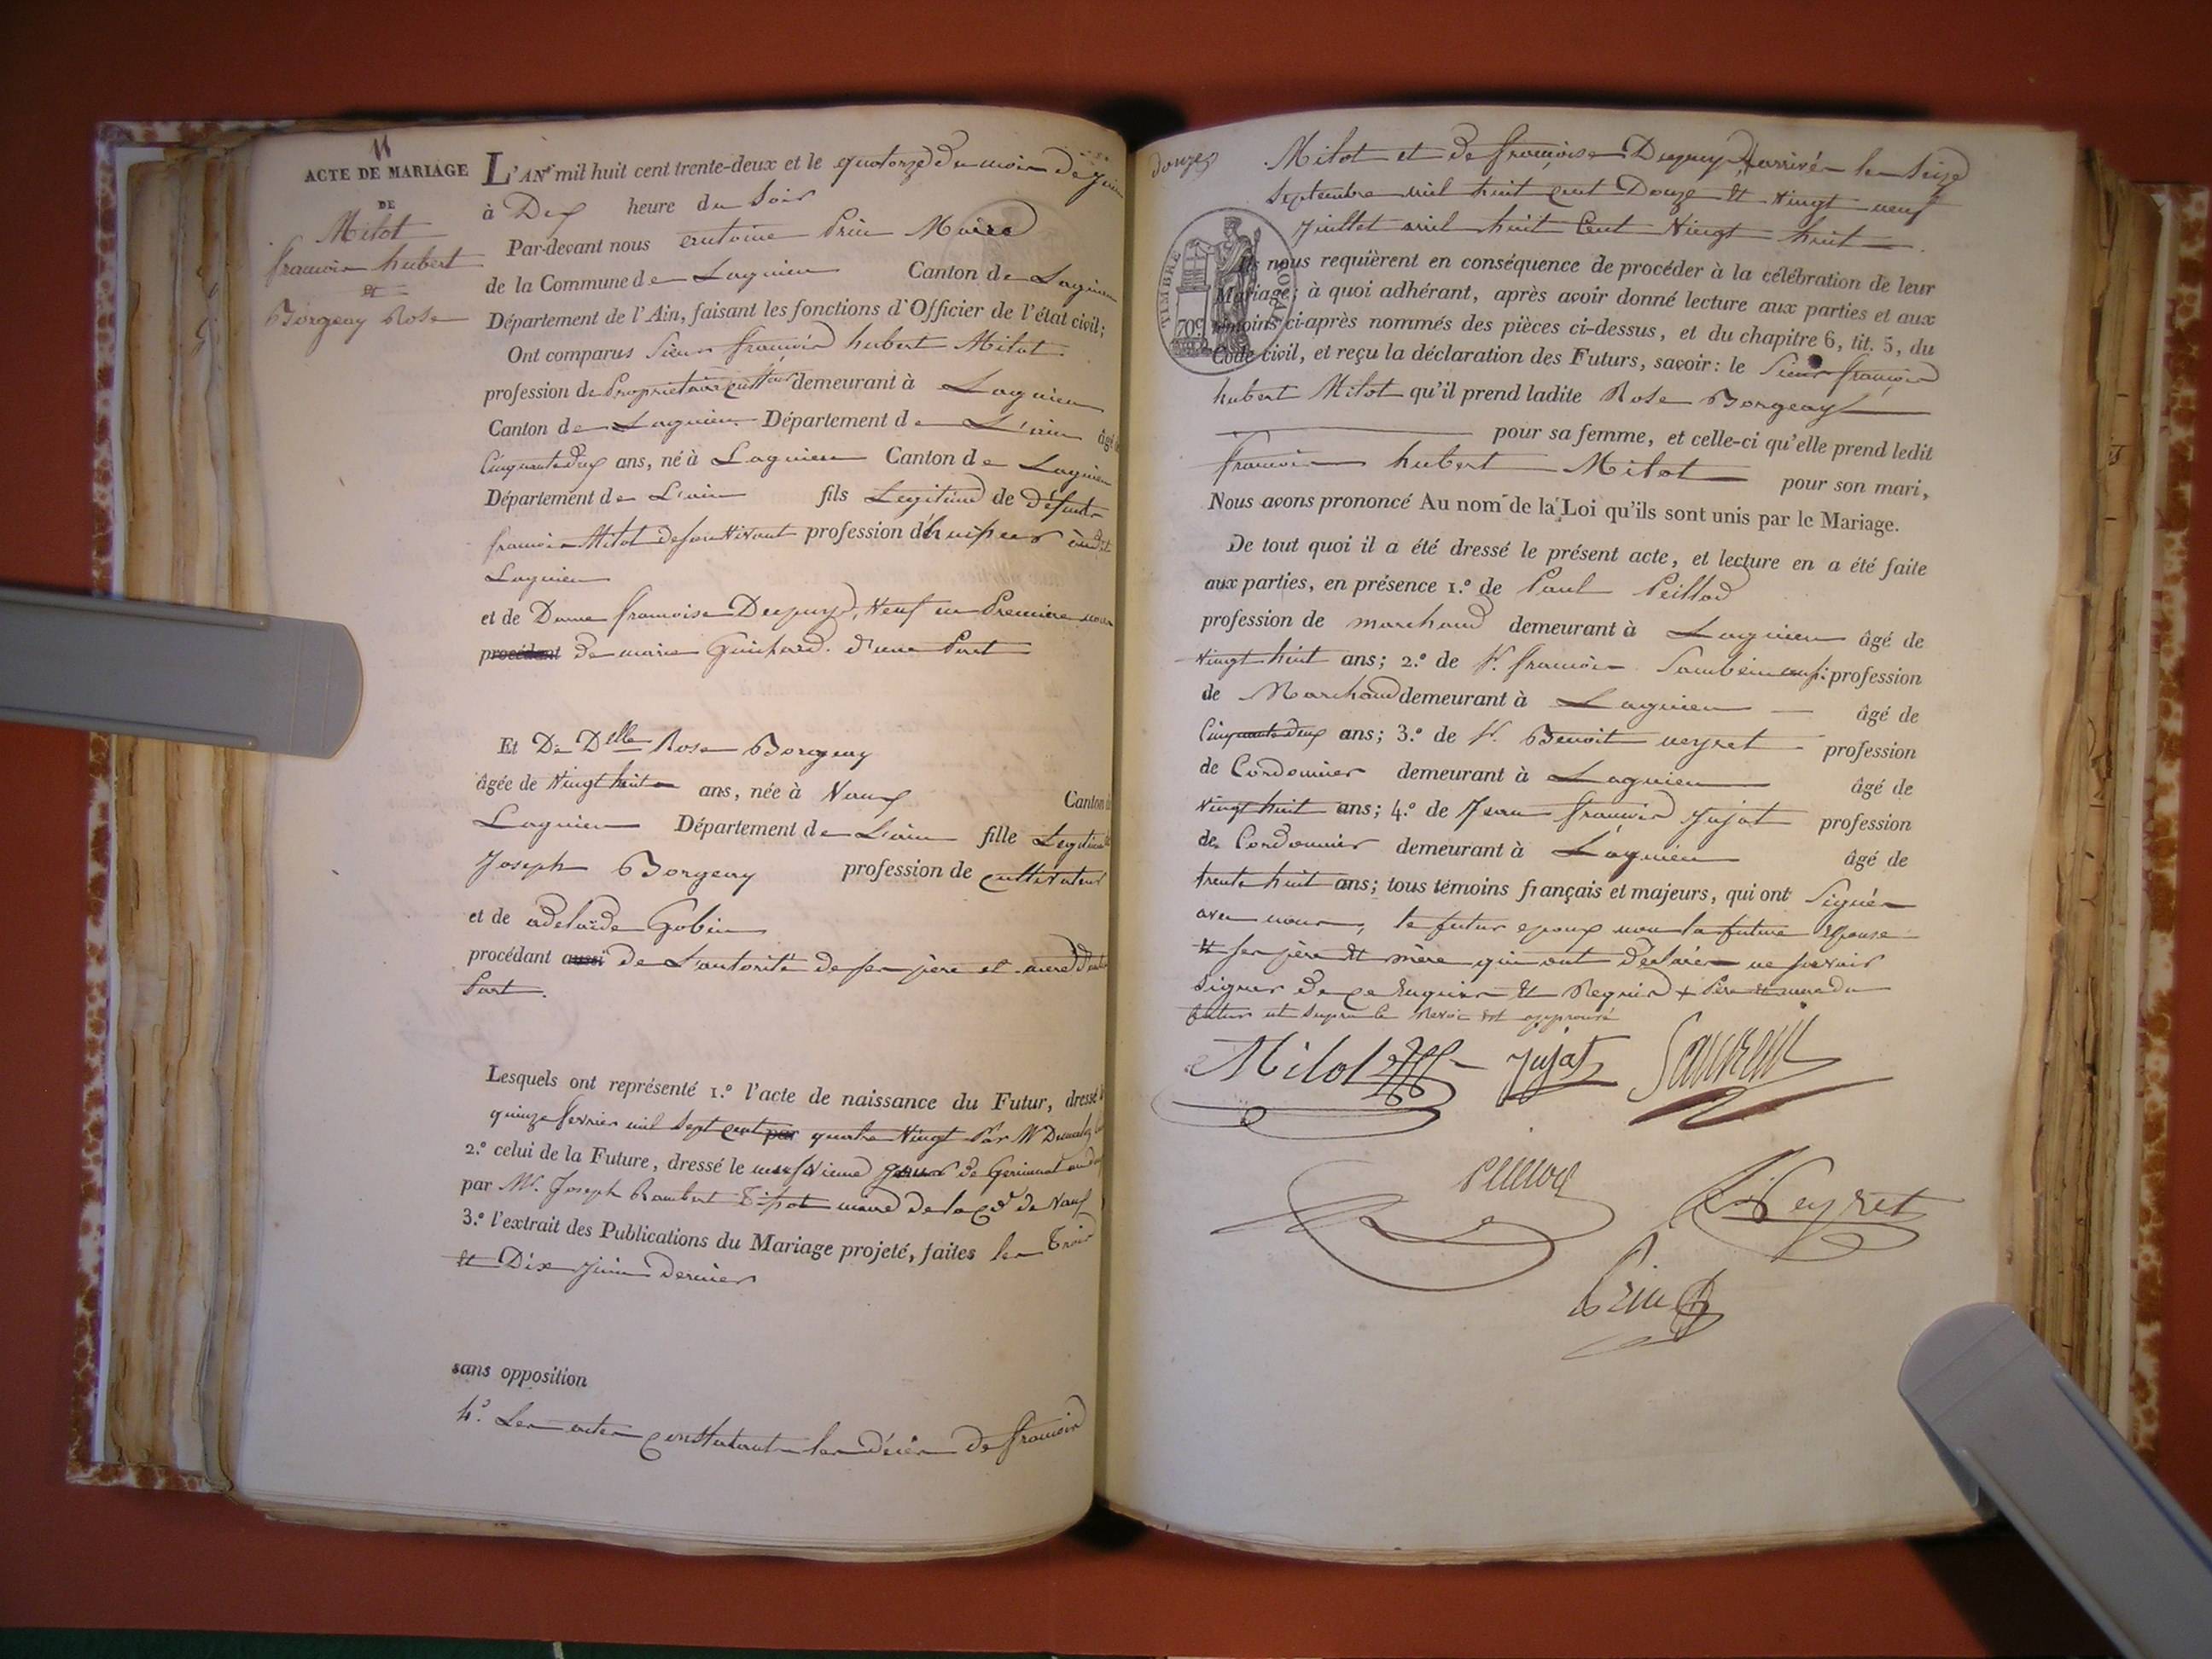 11
ACTE DE MARIAGE
DE
Milot
françois hubert
et
Borgeay Rose
L'AN mil huit cent trente-deux et le quatorze du mois de juin
à Deux heure du Soir
Par-devant nous antoine Prin Maire
de la Commune de Lagnieu Canton de Lagnieu
Département de l'Ain, faisant les fonctions d'Officier de l'état civil;
Ont comparus Sieur françois hubert Milot
profession de Propriétaire culteur demeurant à Lagnieu
Canton de Lagnieu Département de L'ain âgé de
Cinquante deux ans, né à Lagnieu Canton de Lagnieu
Département de L'ain fils Legitime de défunt
françois Milot de son vivant profession d'huissier audit
Lagnieu
et de Dame françoise Dupuy, Veuf en Premiere noce
procédant de marie Guichard d'une Part
Et De Delle Rose Borgeay
âgée de Vingt huit ans, née à Vaux Canton de
Lagnieu Département de L'ain fille Legitime
Joseph Borgeay profession de cultivateur
et de adelaïde Gobin
procédant aussi de L'autorité de ses père et mere d'autre
Part.
Lesquels ont représenté 1.º l'acte de naissance du Futur, dressé le
quinze fevrier mil sept cent par quatre Vingt Par Mr
2.º celui de la Future, dressé le jour de Germinal an
par Mr. Joseph Rambert maire de la Cne de Vaux
3.º l'extrait des Publications du Mariage projeté, faites les Trois
et Dix juin dernier
sans opposition
4.º Les actes constatant les décès de françois
douze
Milot et de françoise Dupuy, arrivés les Seize
Septembre mil huit cent Douze et Vingt neuf
Juillet mil huit Cent Vingt huit.
TIMBRE ROYAL
70c
Ils nous requièrent en conséquence de procéder à la célébration de leur
Mariage; à quoi adhérant, après avoir donné lecture aux parties et aux
témoins ci-après nommés des pièces ci-dessus, et du chapitre 6, tit. 5, du
Code civil, et reçu la déclaration des Futurs, savoir: le Sieur françois
hubert Milot qu'il prend ladite Rose Borgeay
pour sa femme, et celle-ci qu'elle prend ledit
françois hubert Milot pour son mari,
Nous avons prononcé Au nom de la Loi qu'ils sont unis par le Mariage.
De tout quoi il a été dressé le présent acte, et lecture en a été faite
aux parties, en présence 1.º de Paul Peillod
profession de marchand demeurant à Lagnieu âgé de
Vingt huit ans; 2.º de Sr. françois profession
de Marchand demeurant à Lagnieu âgé de
Cinquante deux ans; 3.º de Sr. Benoit veyret profession
de Cordonnier demeurant à Lagnieu âgé de
Vingt huit ans; 4.º de Jean françois Jujat profession
de Cordonnier demeurant à Lagnieu âgé de
trente huit ans; tous témoins français et majeurs, qui ont Signés
avec nous, le futur epoux non la future Epouse
et ses père et mère qui ont déclarés ne savoir
signer de ce Enquis et Requis + Père et mere du
futur ut supra le renvoi est approuvé
Milot Jujat
Peillod Veyret
Prin